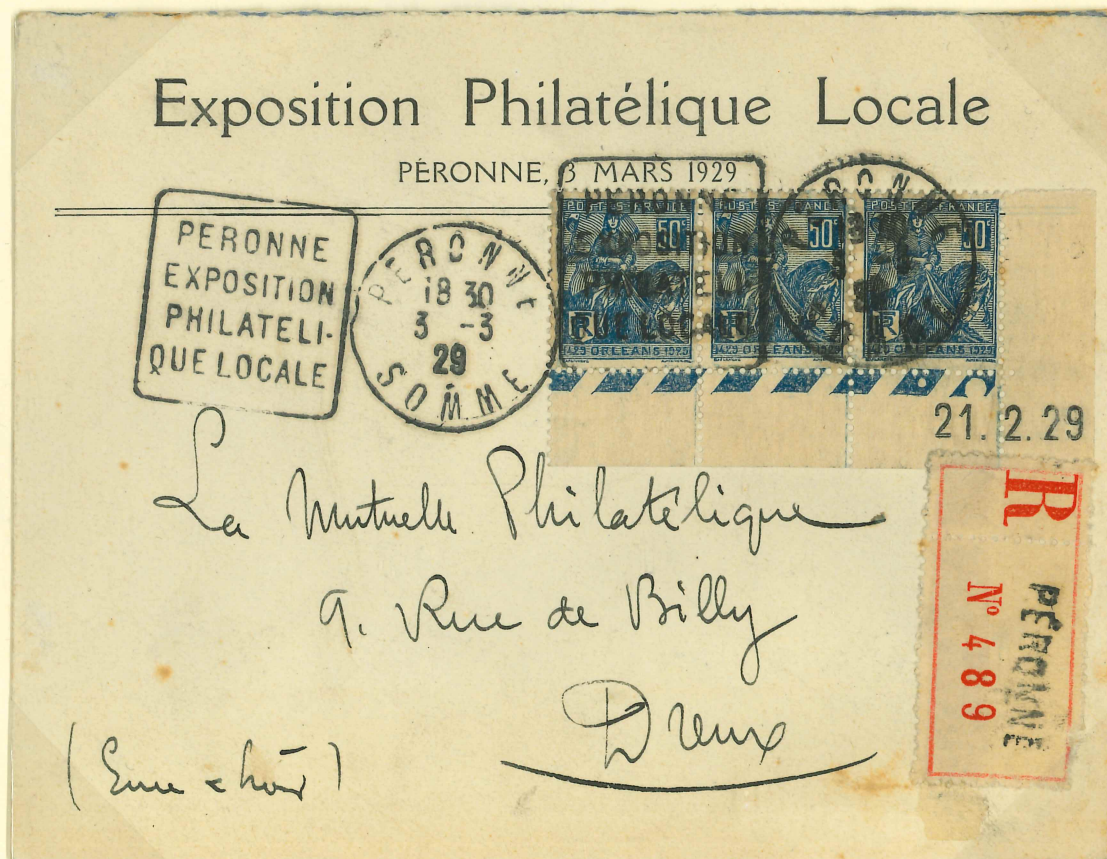 Exposition Philatélique Locale
PÉRONNE, 3 MARS 1929
PERONNE
EXPOSITION
PHILATELI-
QUE LOCALE
PERONNE
18 30
3 -3
29
SOMME
PERONNE
EXPOSITION
PHILATELI
QUE LOCALE
PERONNE
POSTES FRANCE
50c
RF
1429 ORLEANS 1929
POSTES FRANCE
50c
RF
1429 ORLEANS 1929
POSTES FRANCE
50c
RF
1429 ORLEANS 1929
21.2.29
R
PÉRONNE
N° 489
La Mutuelle Philatélique
9. Rue de Billy
Dreux
(Eure & Loir)